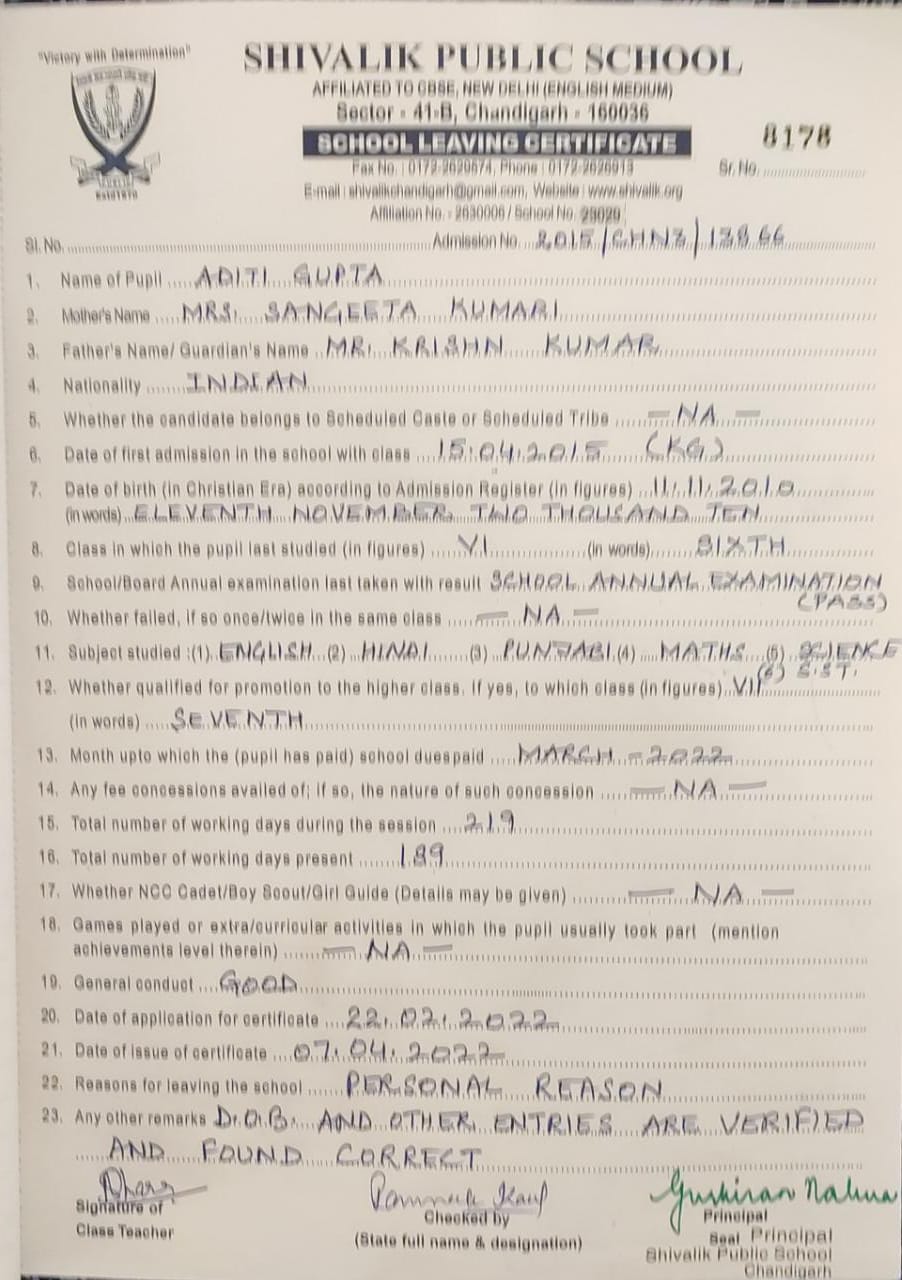 "Victory with Determination"
SHIVALIK PUBLIC SCHOOL
AFFILIATED TO CBSE, NEW DELHI (ENGLISH MEDIUM)
Sector - 41-B, Chandigarh - 160036
SCHOOL LEAVING CERTIFICATE
8178
Fax No. : 0172-2629674, Phone : 0172-2626913
Sr. No.
E-mail : shivalikchandigarh@gmail.com, Website : www.shivalik.org
Affiliation No. - 2630006 / School No. 25020
Sl. No. Admission No. 2015/CHN3/13866
1. Name of Pupil ADITI GUPTA
2. Mother's Name MRS. SANGEETA KUMARI
3. Father's Name/ Guardian's Name MR. KRISHN KUMAR
4. Nationality INDIAN
5. Whether the candidate belongs to Scheduled Caste or Scheduled Tribe — NA —
6. Date of first admission in the school with class 15.04.2015 (KG)
7. Date of birth (in Christian Era) according to Admission Register (in figures) 11.11.2010
(in words) ELEVENTH NOVEMBER TWO THOUSAND TEN
8. Class in which the pupil last studied (in figures) VI (in words) SIXTH
9. School/Board Annual examination last taken with result SCHOOL ANNUAL EXAMINATION
(PASS)
10. Whether failed, if so once/twice in the same class — NA —
11. Subject studied :(1) ENGLISH (2) HINDI (3) PUNJABI (4) MATHS (5) SCIENCE
(6) S.ST.
12. Whether qualified for promotion to the higher class. If yes, to which class (in figures) VII
(in words) SEVENTH
13. Month upto which the (pupil has paid) school duespaid MARCH - 2022
14. Any fee concessions availed of; if so, the nature of such concession — NA —
15. Total number of working days during the session 219
16. Total number of working days present 189
17. Whether NCC Cadet/Boy Scout/Girl Guide (Details may be given) — NA —
18. Games played or extra/curricular activities in which the pupil usually took part (mention
achievements level therein) — NA —
19. General conduct GOOD
20. Date of application for certificate 22.02.2022
21. Date of issue of certificate 07.04.2022
22. Reasons for leaving the school PERSONAL REASON
23. Any other remarks D.O.B. AND OTHER ENTRIES ARE VERIFIED
AND FOUND CORRECT
Signature of
Class Teacher
Kaur
Checked by
(State full name & designation)
Principal
Seal Principal
Shivalik Public School
Chandigarh